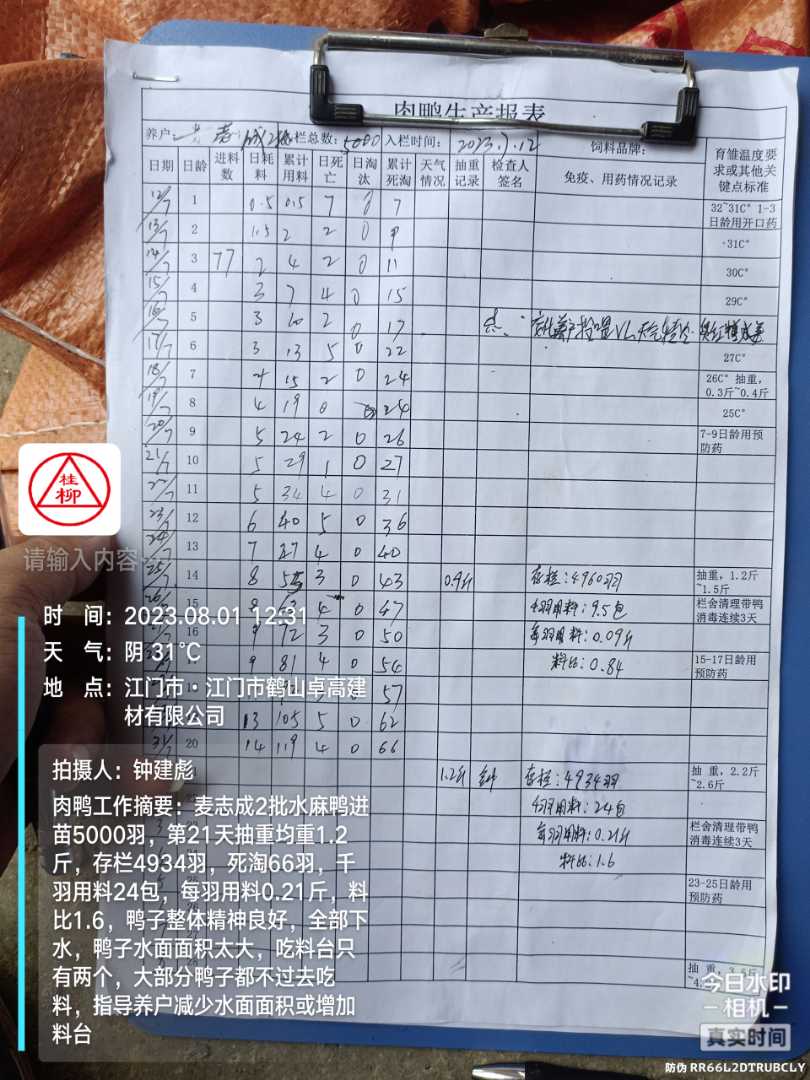 肉鸭生产报表
养户: 麦 成2批 栏总数: 5000 入栏时间: 2023.7.12 饲料品牌:
日期 日龄 进料数 日耗料 累计用料 日死亡 日淘汰 累计死淘 天气情况 抽重记录 检查人签名 免疫、用药情况记录 育雏温度要求或其他关键点标准
12/7 1 0.5 0.5 7 0 7 32~31C° 1-3日龄用开口药
13/7 2 1.5 2 2 0 9 31C°
14/7 3 77 2 4 2 0 11 30C°
15/7 4 3 7 4 0 15 29C°
16/7 5 3 10 2 0 17
17/7 6 3 13 5 0 22 27C°
18/7 7 2 15 2 0 24 26C° 抽重，0.3斤~0.4斤
19/7 8 4 19 0 0 24 25C°
20/7 9 5 24 2 0 26 7-9日龄用预防药
21/7 10 5 29 1 0 27
22/7 11 5 34 4 0 31
23/7 12 6 40 5 0 36
24/7 13 7 47 4 0 40
25/7 14 8 55 3 0 43 0.9斤 存栏:4960羽 抽重，1.2斤~1.5斤
26/7 15 8 4 0 47 千羽用料:9.5包 栏舍清理带鸭消毒连续3天
16 9 72 3 0 50 每羽用料:0.09斤
9 81 4 0 54 料比:0.84 15-17日龄用预防药
57
13 105 5 0 62
31/7 20 14 119 4 0 66
1.2斤 存栏:4934羽 抽重，2.2斤~2.6斤
千羽用料:24包
每羽用料:0.21斤 栏舍清理带鸭消毒连续3天
料比:1.6
23-25日龄用预防药
抽重，3.5斤
桂柳
请输入内容
时 间：2023.08.01 12:31
天 气：阴 31℃
地 点：江门市·江门市鹤山卓高建
材有限公司
拍摄人：钟建彪
肉鸭工作摘要：麦志成2批水麻鸭进
苗5000羽，第21天抽重均重1.2
斤，存栏4934羽，死淘66羽，千
羽用料24包，每羽用料0.21斤，料
比1.6，鸭子整体精神良好，全部下
水，鸭子水面面积太大，吃料台只
有两个，大部分鸭子都不过去吃
料，指导养户减少水面面积或增加
料台
今日水印
相机
真实时间
防伪 RR66L2DTRUBCLY